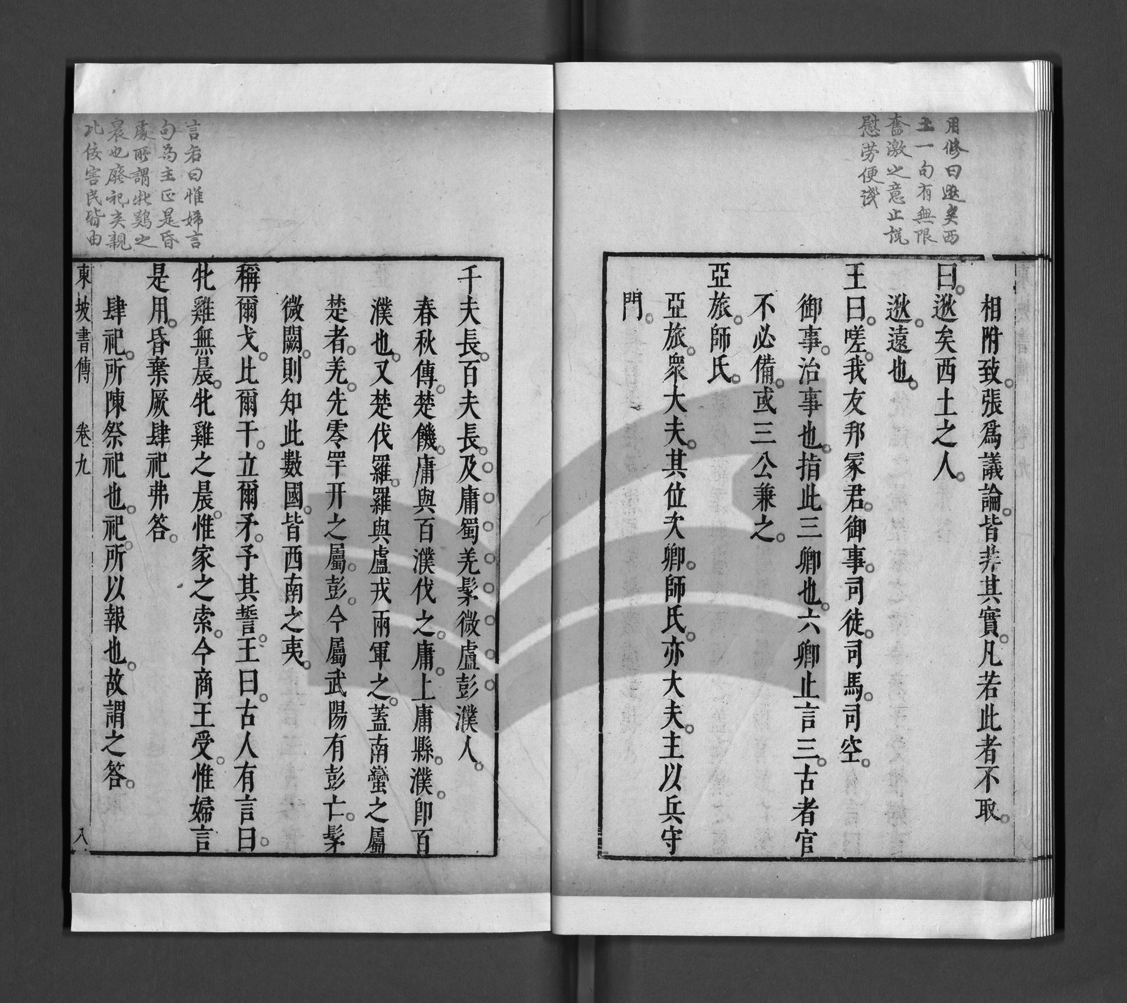 用修曰逖矣西
土一句有無限
奮激之意止説
慰勞便淺
相附致。張爲議論。皆非其實。凡若此者不取。
曰。逖矣西土之人。
逖。遠也。
王曰。嗟。我友邦冢君。御事。司徒。司馬。司空。
御事。治事也。指此三卿也。六卿止言三。古者官
不必備。或三公兼之。
亞旅。師氏。
亞旅。衆大夫。其位次卿。師氏。亦大夫。主以兵守
門。
言者曰惟婦言
句爲主正是昏
處所謂牝鷄之
晨也廢祀失親
比佞害民皆由
千夫長。百夫長。及庸蜀羌髳微盧彭濮人。
春秋傳。楚饑。庸與百濮伐之。庸。上庸縣。濮。卽百
濮也。又楚伐羅。羅與盧戎兩軍之。蓋南蠻之屬
楚者。羌。先零罕幵之屬。彭。今屬武陽有彭亡。髳
微闕。則知此數國。皆西南之夷。
稱爾戈。比爾干。立爾矛。予其誓。王曰。古人有言曰。
牝雞無晨。牝雞之晨。惟家之索。今商王受。惟婦言
是用。昏棄厥肆祀弗答。
肆祀。所陳祭祀也。祀。所以報也。故謂之答。
東坡書傳 卷九 八